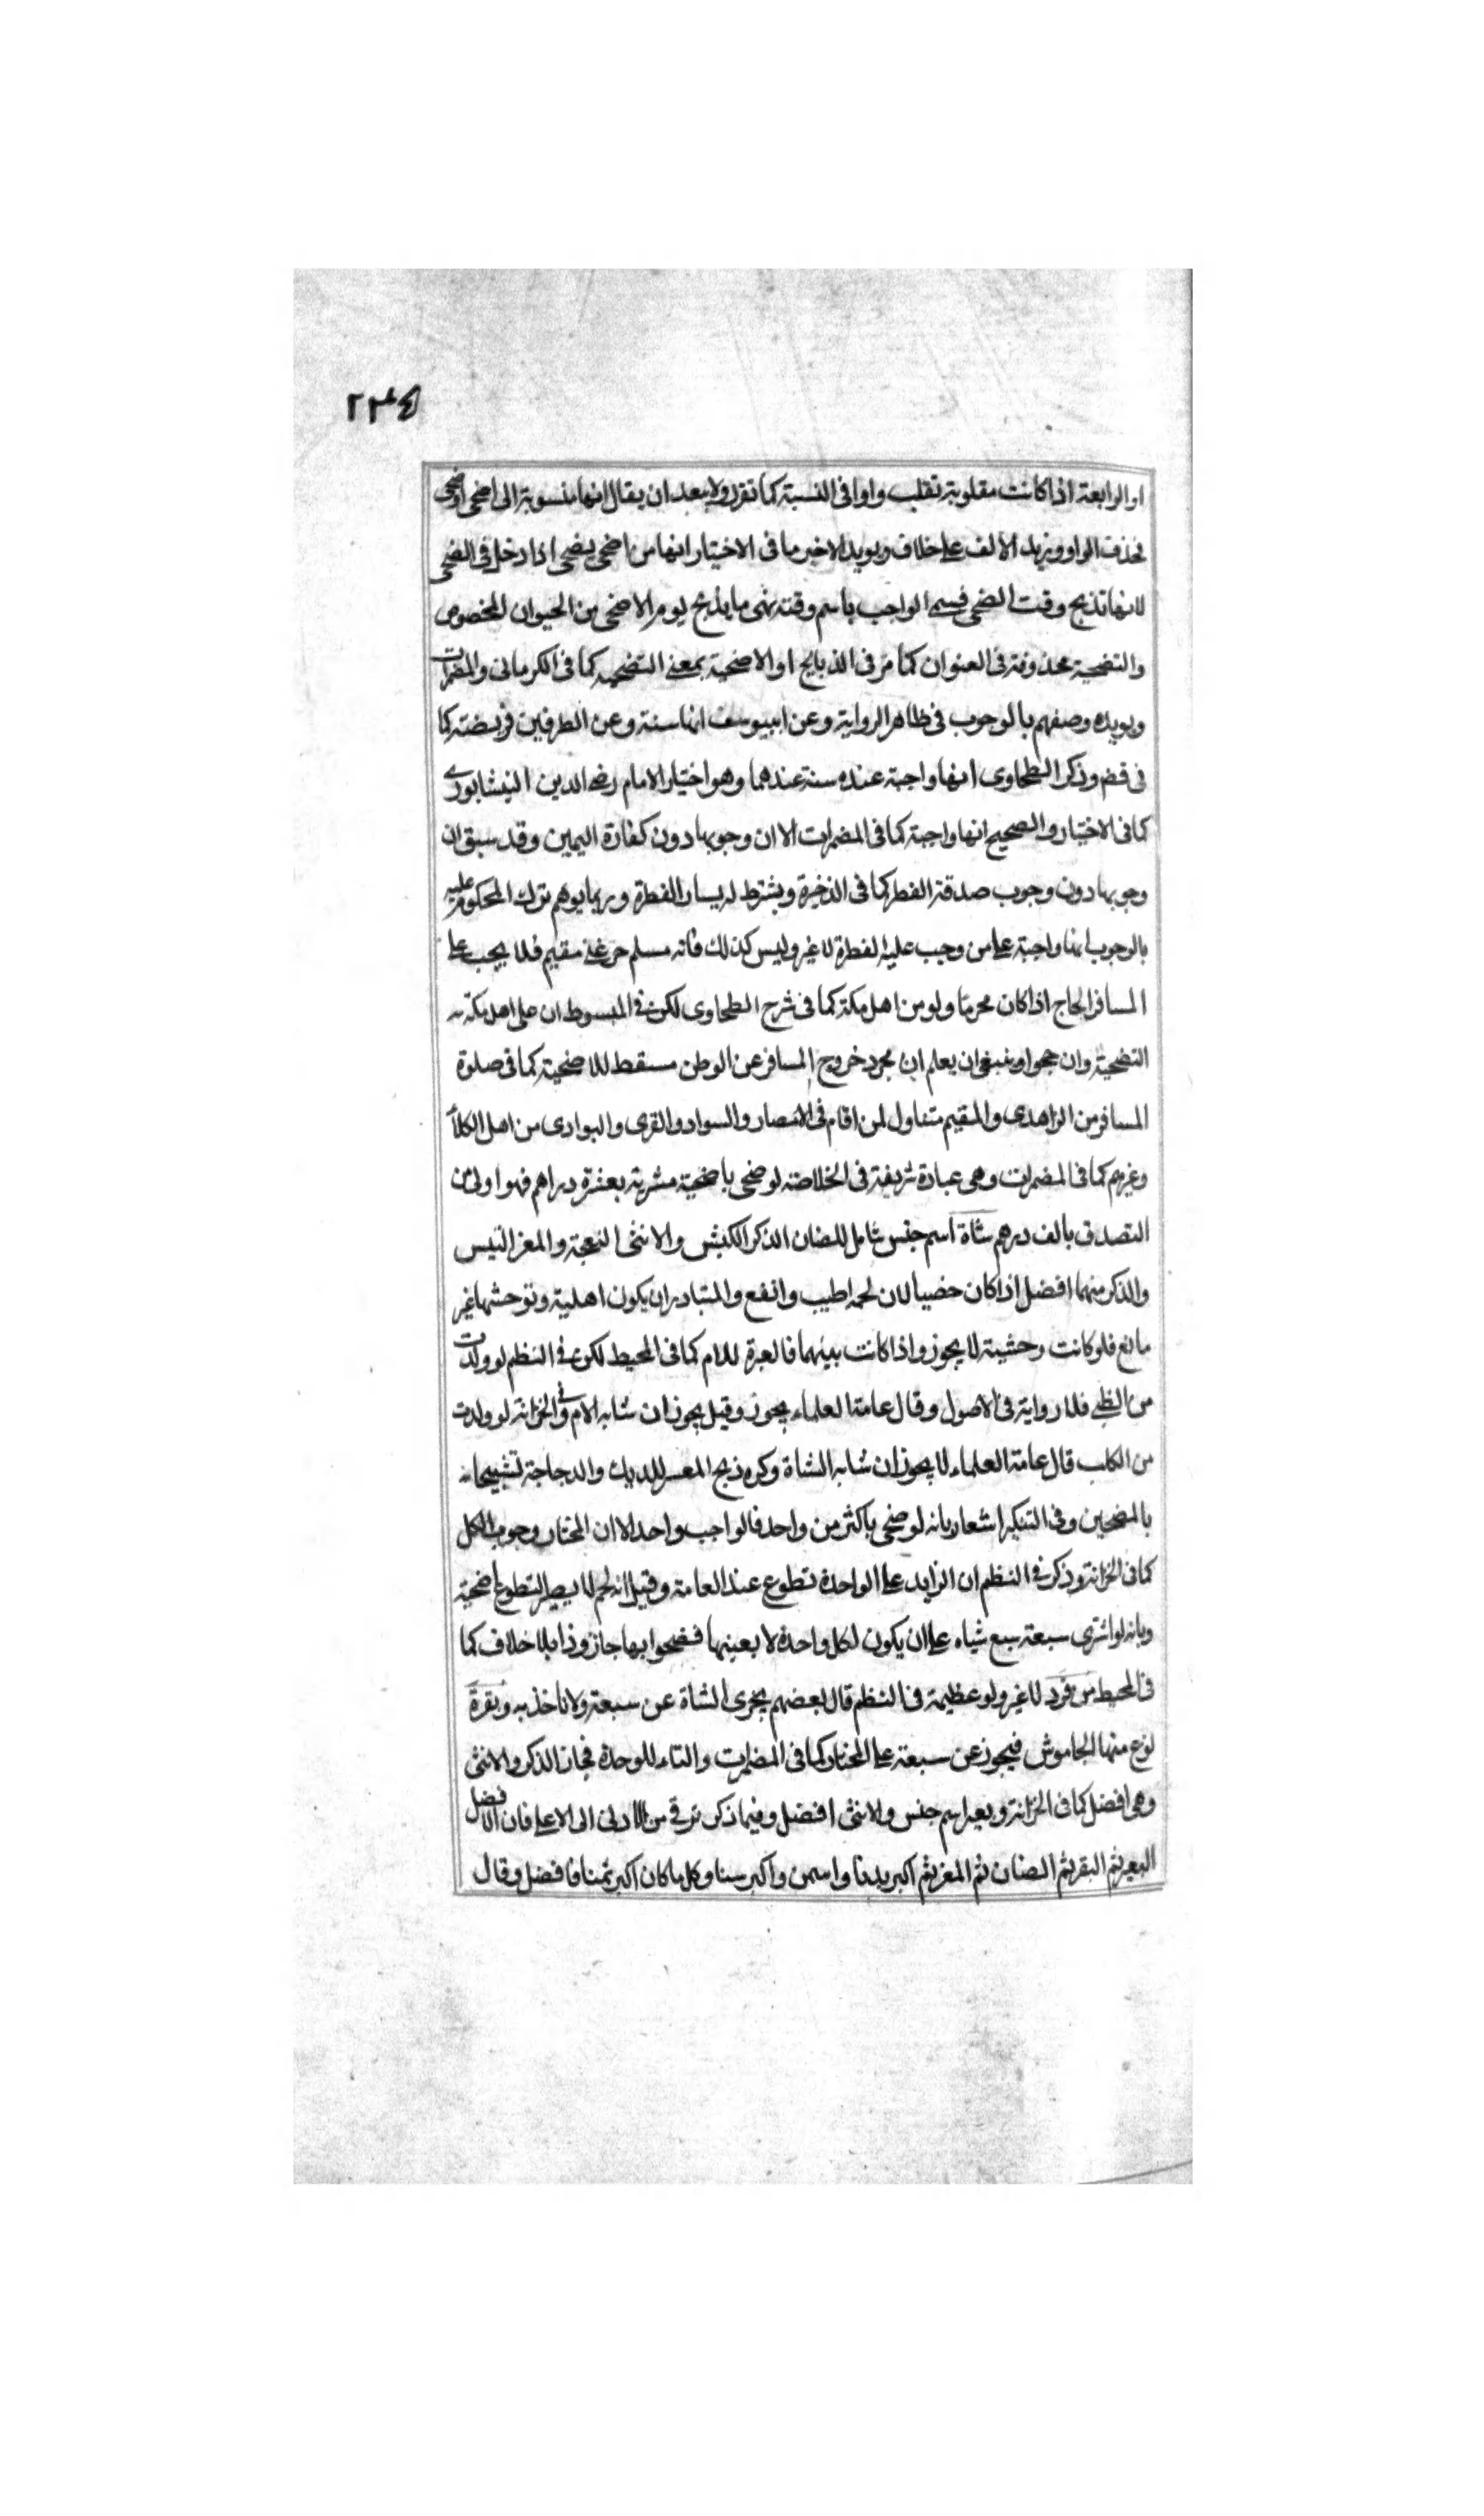 ٢٣٤
او الرابعة اذا كانت مقلوبة تقلب واوا فى النسبة كما تقرر ولا يبعد ان يقال انها منسوبة الى اضحى او ضحى
بحذف الواو ويزيد الالف على خلاف ويويد الاخير ما فى الاختيار انها من اضحى يضحى اذا دخل فى الضحى
لانها تذبح وقت الضحى فسمى الواجب باسم وقته فهى ما يذبح يوم الاضحى من الحيوان المخصوص
والتضحية محذوفة فى العنوان كما مر فى الذبايح او الاضحية بمعنى التضحية كما فى الكرمانى والمضمرات
ويويده وصفهم بالوجوب فى ظاهر الرواية وعن ابييوسف انها سنة وعن الطرفين فريضة كما
فى قض وذكر الطحاوى انها واجبة عنده سنة عندهما وهو اختيار الامام رضى الدين النيشابورى
كما فى الاختيار والصحيح انها واجبة كما فى المضمرات الا ان وجوبها دون كفارة اليمين وقد سبق ان
وجوبها دون وجوب صدقة الفطر كما فى الذخيرة ويشترط له يسار الفطرة وربما يوهم ترك المحكوم عليه
بالوجوب انها واجبة على من وجب عليه الفطرة لا غير وليس كذلك فانه مسلم حر غنى مقيم فلا يجب على
المسافر الحاج اذا كان محرما ولو من اهل مكة كما فى شرح الطحاوى لكن فى المبسوط ان على اهل مكة
التضحية وان حجوا وينبغى ان يعلم ان مجرد خروج المسافر عن الوطن مسقط للاضحية كما فى صلوة
المسافر من الزاهدى والمقيم متناول لمن اقام فى الامصار والسواد والقرى والبوادى من اهل الكلأ
وغيرهم كما فى المضمرات وهى عبادة شريفة فى الخلاصة لو ضحى باضحية مشرية بعشرة دراهم فهو اولى من
التصدق بالف درهم شاة اسم جنس شامل للضان الذكر الكبش والانثى النعجة والمعز التيس
والذكر منهما افضل اذا كان خصيا لان لحمه اطيب وانفع والمتبادر ان يكون اهلية وتوحشها غير
مانع فلو كانت وحشية لا يجوز واذا كانت بينهما فالعبرة للام كما فى المحيط لكن فى النظم لو ولدت
من الظبى فلا رواية فى الاصول وقال عامة العلماء يجوز وقيل يجوز ان شابه الام وفى الخزانة لو ولدت
من الكلب قال عامة العلماء لا يجوز ان شابه الشاة وكره ذبح المعسر للديك والدجاجة تشبيها
بالمضحين وفى التنكير اشعار بانه لو ضحى باكثر من واحد فالواجب واحد الا ان المختار وجوب الكل
كما فى الخزانة وذكر فى النظم ان الزايد على الواحدة تطوع عند العامة وقيل انه لحم لا يصير التطوع اضحية
وبانه لو اشترى سبعة سبع شياه على ان يكون لكل واحدة لا بعينها فضحوا بها جاز وذا بلا خلاف كما
فى المحيط من فرد لا غير ولو عظيمة فى النظم قال بعضهم يجزى الشاة عن سبعة ولا ناخذ به وبقرة
نوع منها الجاموش فيجوز عن سبعة على المختار كما فى المضمرات والتاء للوحدة فجاز الذكر والانثى
وهى افضل كما فى الخزانة وبعير اسم جنس والانثى افضل وفيما ذكر ترقى من الادنى الى الاعلى فان الافضل
البعير ثم البقر ثم الضان ثم المعز ثم اكبر بدنا واسمن واكبر سنا وكل ما كان اكبر ثمنا فافضل وقال